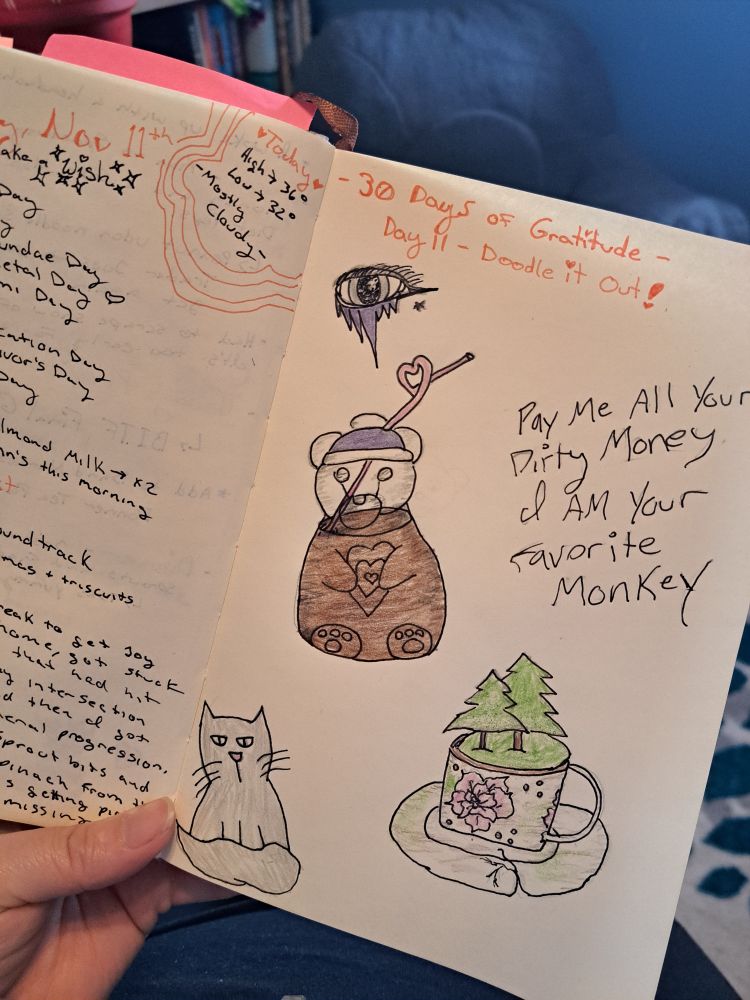 Nov 11th
Wish
Day
Sundae Day
etal Day
Day
cation Day
vor's Day
Day
Almond Milk → x2
this morning
soundtrack
+ triscuits
break to get Joy
home, got stuck
that had hit
intersection
then I got
progression,
sprout bits and
spinach from
getting
missing
Today
High → 36°
Low → 32°
-Mostly
Cloudy-
- 30 Days of Gratitude -
Day 11 - Doodle it Out!
Pay Me All Your
Dirty Money
I AM Your
Favorite
Monkey